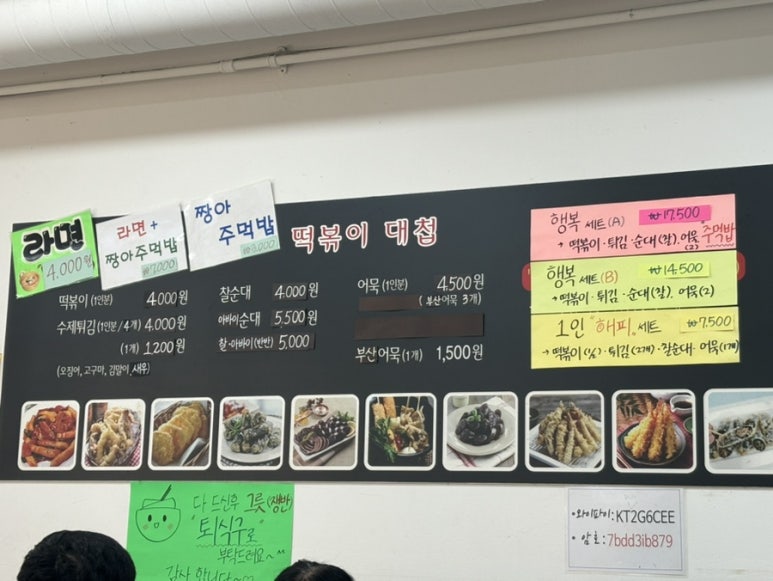 라면
4.000원
라면+
짱아주먹밥
₩7,000
짱아
주먹밥
₩3,000
떡볶이 대첩
떡볶이 (1인분) 4000원
수제튀김 (1인분/4개) 4.000원
(1개) 1.200원
(오징어, 고구마, 김말이, 새우)
찰순대 4.000원
아바이순대 5.500원
찰·아바이(반반) 5.000
어묵 (1인분) 4.500원
(부산어묵 3개)
부산어묵 (1개) 1,500원
행복 세트(A) ₩17.500
→ 떡볶이·튀김·순대(찰).어묵(2) 주먹밥
행복 세트(B) ₩14.500
→떡볶이·튀김·순대(찰).어묵(2)
1인 "해피" 세트 ₩7.500
→ 떡볶이(½)·튀김(2개)·찰순대·어묵(1개)
다 드신후 그릇(쟁반)
"퇴식구로"
부탁드려요~^^
감사합니다~
·와이파이:KT2G6CEE
·암호:7bdd3ib879